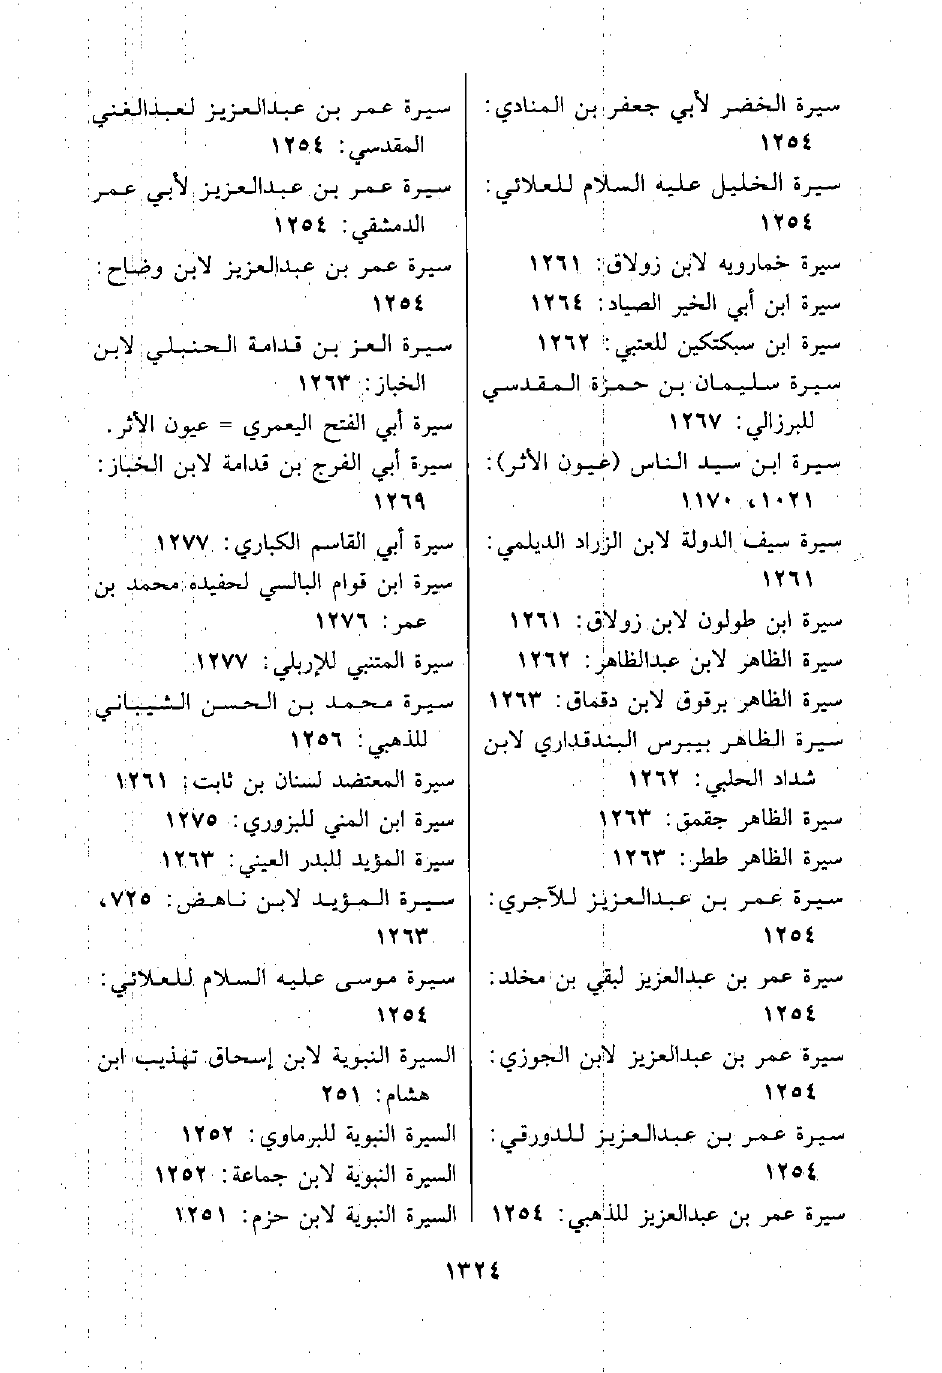 سيرة الخضر لأبي جعفر بن المنادي:
١٢٥٤
سيرة الخليل عليه السلام للعلائي:
١٢٥٤
سيرة خمارويه لابن زولاق: ١٢٦١
سيرة ابن أبي الخير الصياد: ١٢٦٤
سيرة ابن سبكتكين للعتبي: ١٢٦٢
سيرة سليمان بن حمزة المقدسي
للبرزالي: ١٢٦٧
سيرة ابن سيد الناس (عيون الأثر):
١٠٢١، ١١٧٠
سيرة سيف الدولة لابن الزراد الديلمي:
١٢٦١
سيرة ابن طولون لابن زولاق: ١٢٦١
سيرة الظاهر لابن عبدالظاهر: ١٢٦٢
سيرة الظاهر برقوق لابن دقماق: ١٢٦٣
سيرة الظاهر بيبرس البندقداري لابن
شداد الحلبي: ١٢٦٢
سيرة الظاهر جقمق: ١٢٦٣
سيرة الظاهر ططر: ١٢٦٣
سيرة عمر بن عبدالعزيز للآجري:
١٢٥٤
سيرة عمر بن عبدالعزيز لبقي بن مخلد:
١٢٥٤
سيرة عمر بن عبدالعزيز لابن الجوزي:
١٢٥٤
سيرة عمر بن عبدالعزيز للدورقي:
١٢٥٤
سيرة عمر بن عبدالعزيز للذهبي: ١٢٥٤
سيرة عمر بن عبدالعزيز لعبدالغني
المقدسي: ١٢٥٤
سيرة عمر بن عبدالعزيز لأبي عمر
الدمشقي: ١٢٥٤
سيرة عمر بن عبدالعزيز لابن وضاح:
١٢٥٤
سيرة العز بن قدامة الحنبلي لابن
الخباز: ١٢٦٣
سيرة أبي الفتح اليعمري = عيون الأثر.
سيرة أبي الفرج بن قدامة لابن الخباز:
١٢٦٩
سيرة أبي القاسم الكباري: ١٢٧٧
سيرة ابن قوام البالسي لحفيده محمد بن
عمر: ١٢٧٦
سيرة المتنبي للإربلي: ١٢٧٧
سيرة محمد بن الحسن الشيباني
للذهبي: ١٢٥٦
سيرة المعتضد لسنان بن ثابت: ١٢٦١
سيرة ابن المني للبزوري: ١٢٧٥
سيرة المؤيد للبدر العيني: ١٢٦٣
سيرة المؤيد لابن ناهض: ٧٢٥،
١٢٦٣
سيرة موسى عليه السلام للعلائي:
١٢٥٤
السيرة النبوية لابن إسحاق تهذيب ابن
هشام: ٢٥١
السيرة النبوية للبرماوي: ١٢٥٢
السيرة النبوية لابن جماعة: ١٢٥٢
السيرة النبوية لابن حزم: ١٢٥١
١٣٢٤